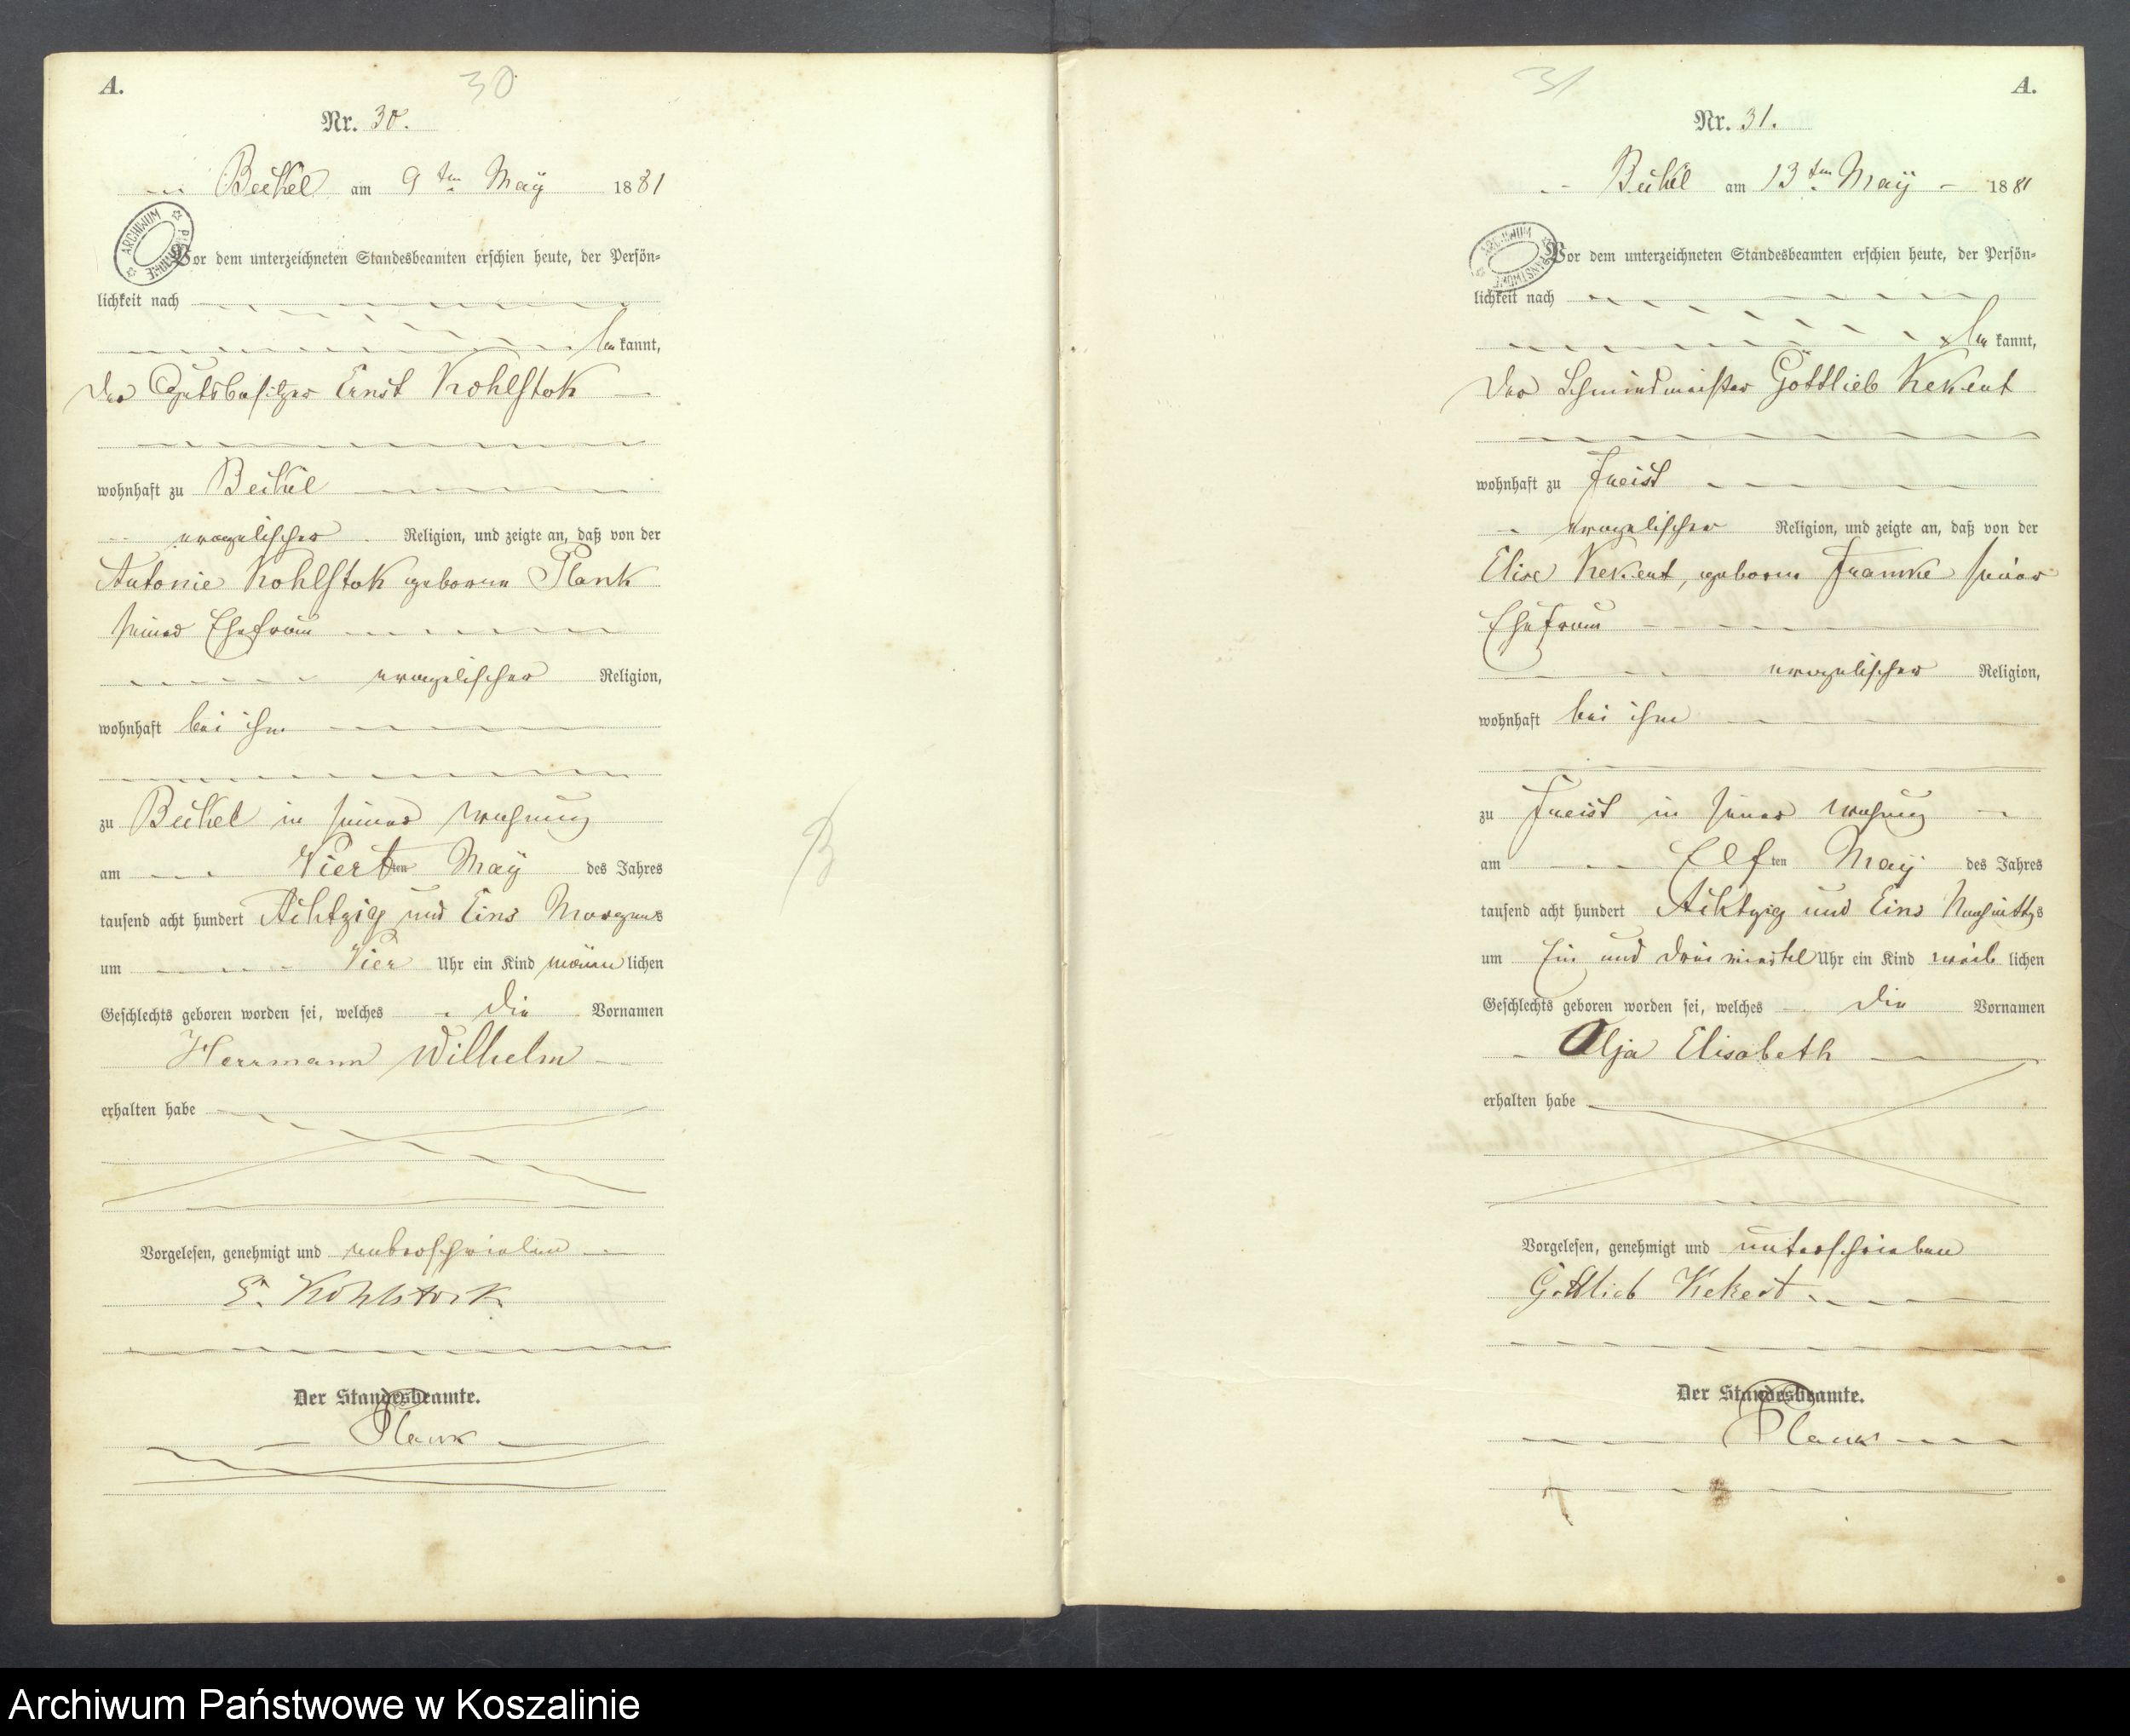 A.
30
Nr. 30.
Beckel am 9ten May 1881
Vor dem unterzeichneten Standesbeamten erschien heute, der Persön-
lichkeit nach
be kannt,
der Gutsbesitzer Ernst Kohlstok
wohnhaft zu Beckel
evangelischer Religion, und zeigte an, daß von der
Antonie Kohlstok geborne Plank
seiner Ehefrau
evangelischer Religion,
wohnhaft bei ihm
zu Beckel in seiner Wohnung
am Vierten May des Jahres
tausend acht hundert Achtzig und Eins Morgens
um Vier Uhr ein Kind männlichen
Geschlechts geboren worden sei, welches die Vornamen
Herrmann Wilhelm
erhalten habe
Vorgelesen, genehmigt und unterschrieben
E. Kohlstock
Der Standesbeamte.
Plank
A.
31
Nr. 31.
Beckel am 13ten May 1881
Vor dem unterzeichneten Standesbeamten erschien heute, der Persön-
lichkeit nach
be kannt,
der Schmiedmeister Gottlieb Kekert
wohnhaft zu Freist
evangelischer Religion, und zeigte an, daß von der
Elise Kekert, geborne Framke seiner
Ehefrau
evangelischer Religion,
wohnhaft bei ihm
zu Freist in seiner Wohnung
am Elften May des Jahres
tausend acht hundert Achtzig und Eins Nachmittgs
um Ein und dreiviertel Uhr ein Kind weiblichen
Geschlechts geboren worden sei, welches die Vornamen
Olja Elisabeth
erhalten habe
Vorgelesen, genehmigt und unterschrieben
Gottlieb Kekert
Der Standesbeamte.
Plank
Archiwum Państwowe w Koszalinie